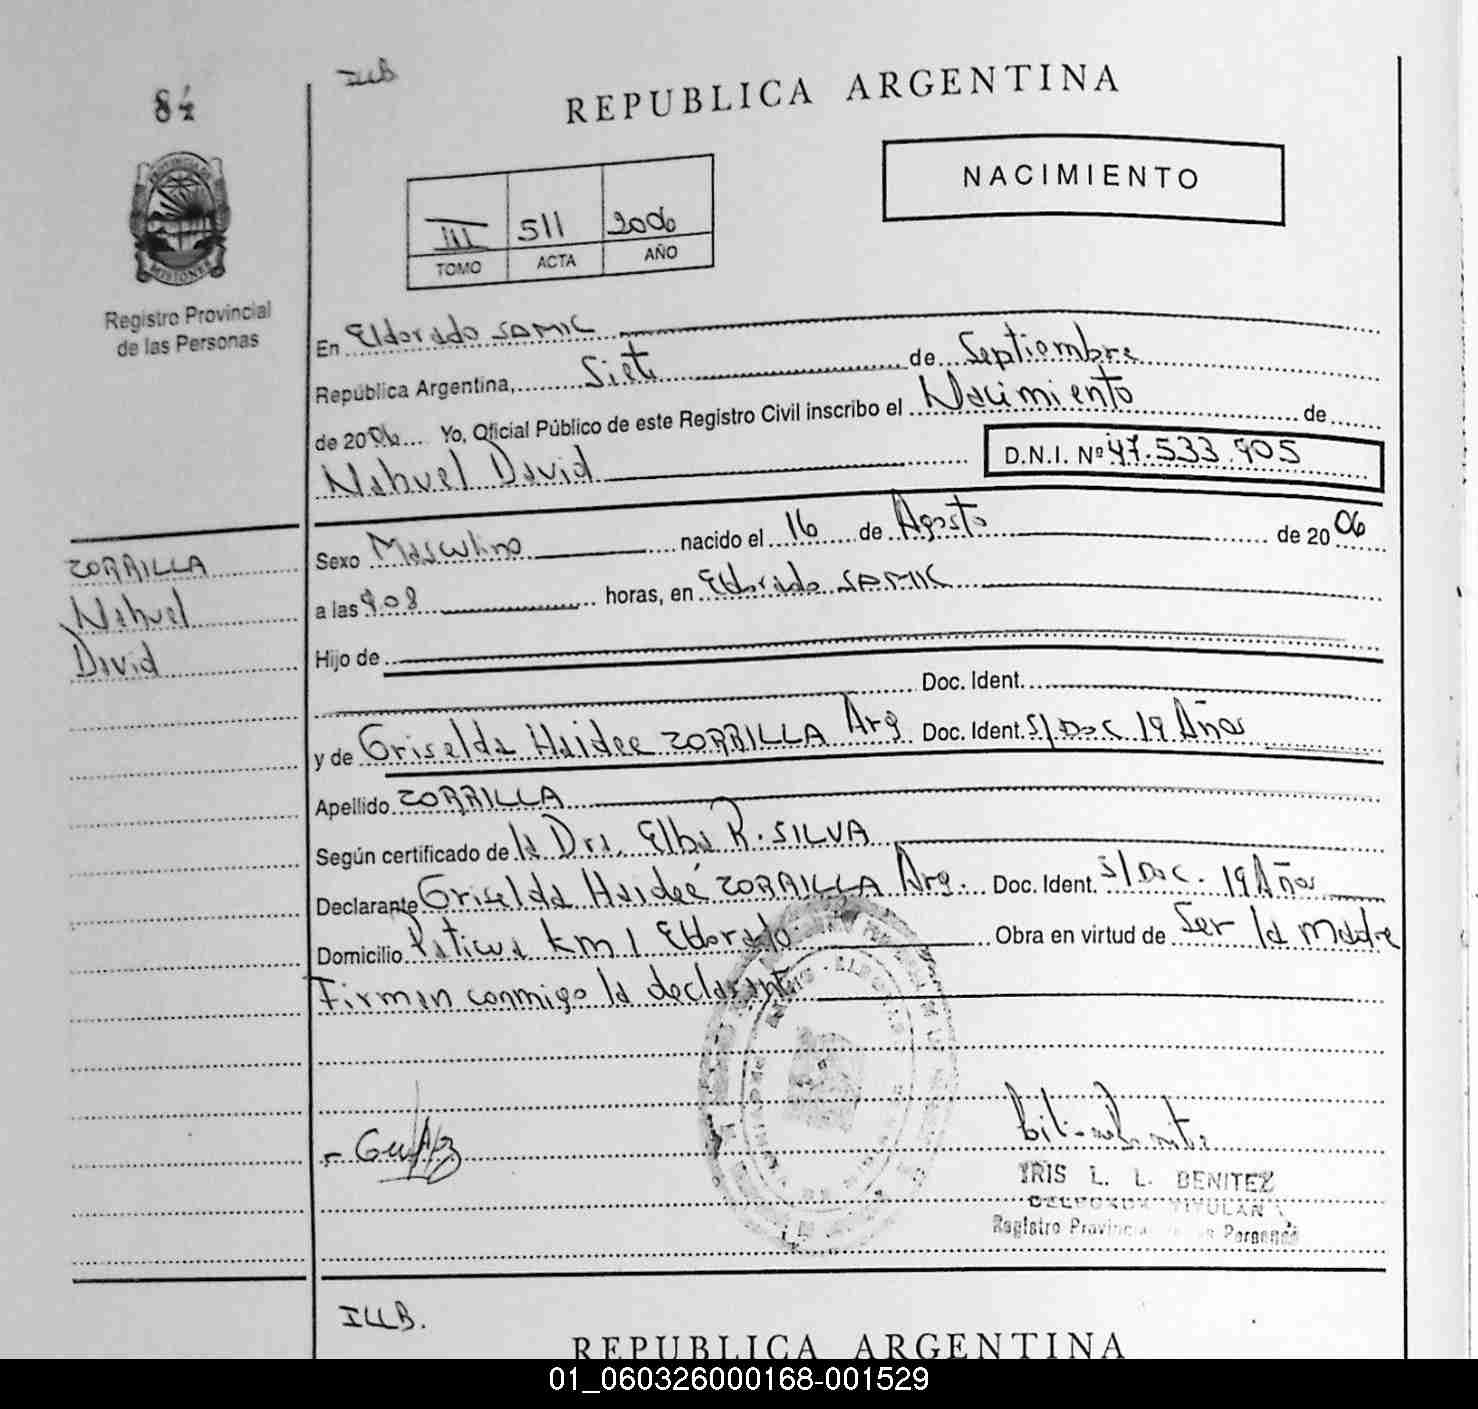 84
ILLB
REPUBLICA ARGENTINA
NACIMIENTO
III 511 2006
TOMO ACTA AÑO
PROVINCIA DE
MISIONES
Registro Provincial
de las Personas
En Eldorado SAMIC
República Argentina, Siete de Septiembre
de 2006 Yo, Oficial Público de este Registro Civil inscribo el Nacimiento de
Nahuel David D.N.I. Nº 47.533.905
ZORRILLA
Nahuel
David
Sexo Masculino nacido el 16 de Agosto de 2006
a las 9.08 horas, en Eldorado SAMIC
Hijo de
Doc. Ident.
y de Griselda Haidee ZORRILLA Arg Doc. Ident. S/Doc 19 Años
Apellido ZORRILLA
Según certificado de la Dra. Elba R. SILVA
Declarante Griselda Haideé ZORRILLA Arg. Doc. Ident. S/Doc. 19 Años
Domicilio km 1 Eldorado Obra en virtud de Ser la madre
Firman conmigo la declarante
IRIS L. L. BENITEZ
DELEGADA TITULAR
Registro Provincial de las Personas
ILLB.
REPUBLICA ARGENTINA
01_060326000168-001529